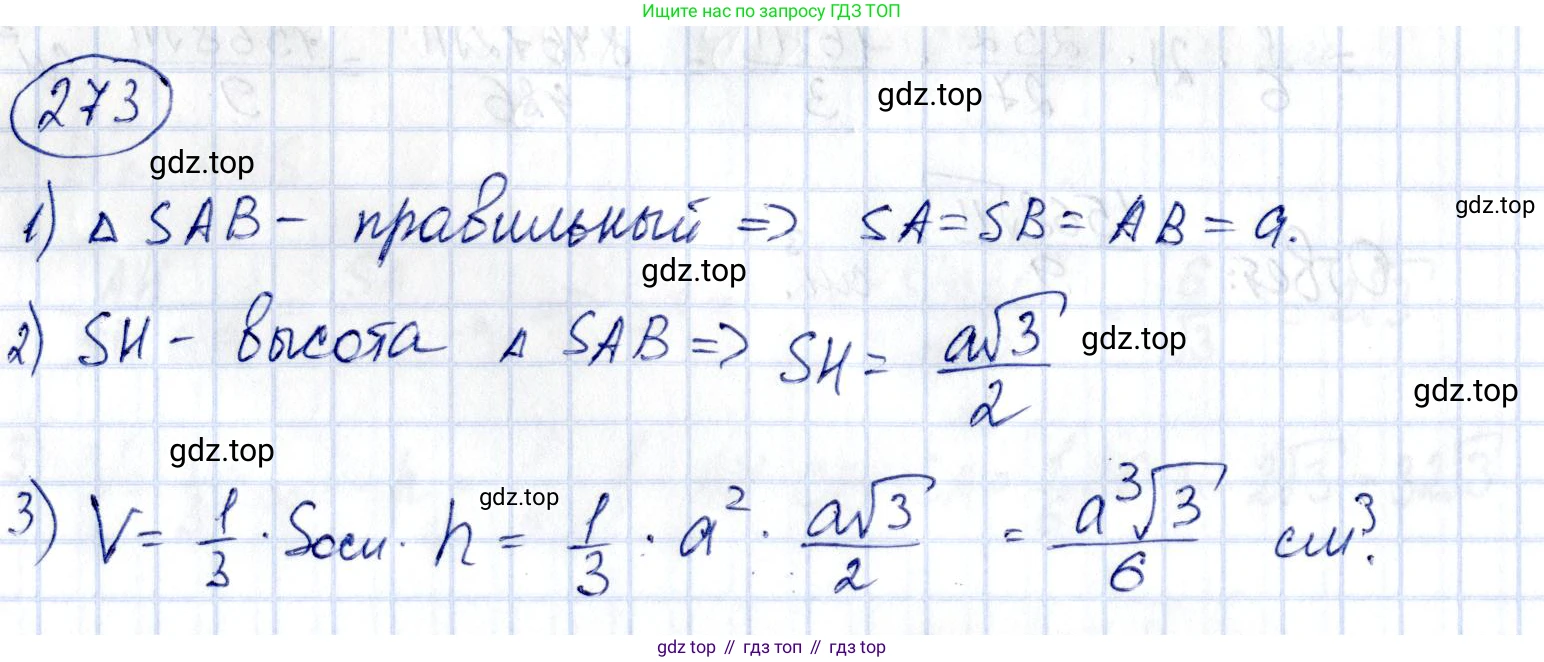 Ищите нас по запросу ГДЗ ТОП
273
gdz.top
gdz.top
1) Δ SAB - правильный => SA = SB = AB = a.
gdz.top
gdz.top
2) SH - высота Δ SAB => SH = a√3/2
gdz.top
gdz.top
gdz.top
gdz.top
3) V = 1/3 · Sосн · h = 1/3 · a² · a√3/2 = a³√3/6 см³.
gdz top // гдз топ // гдз top